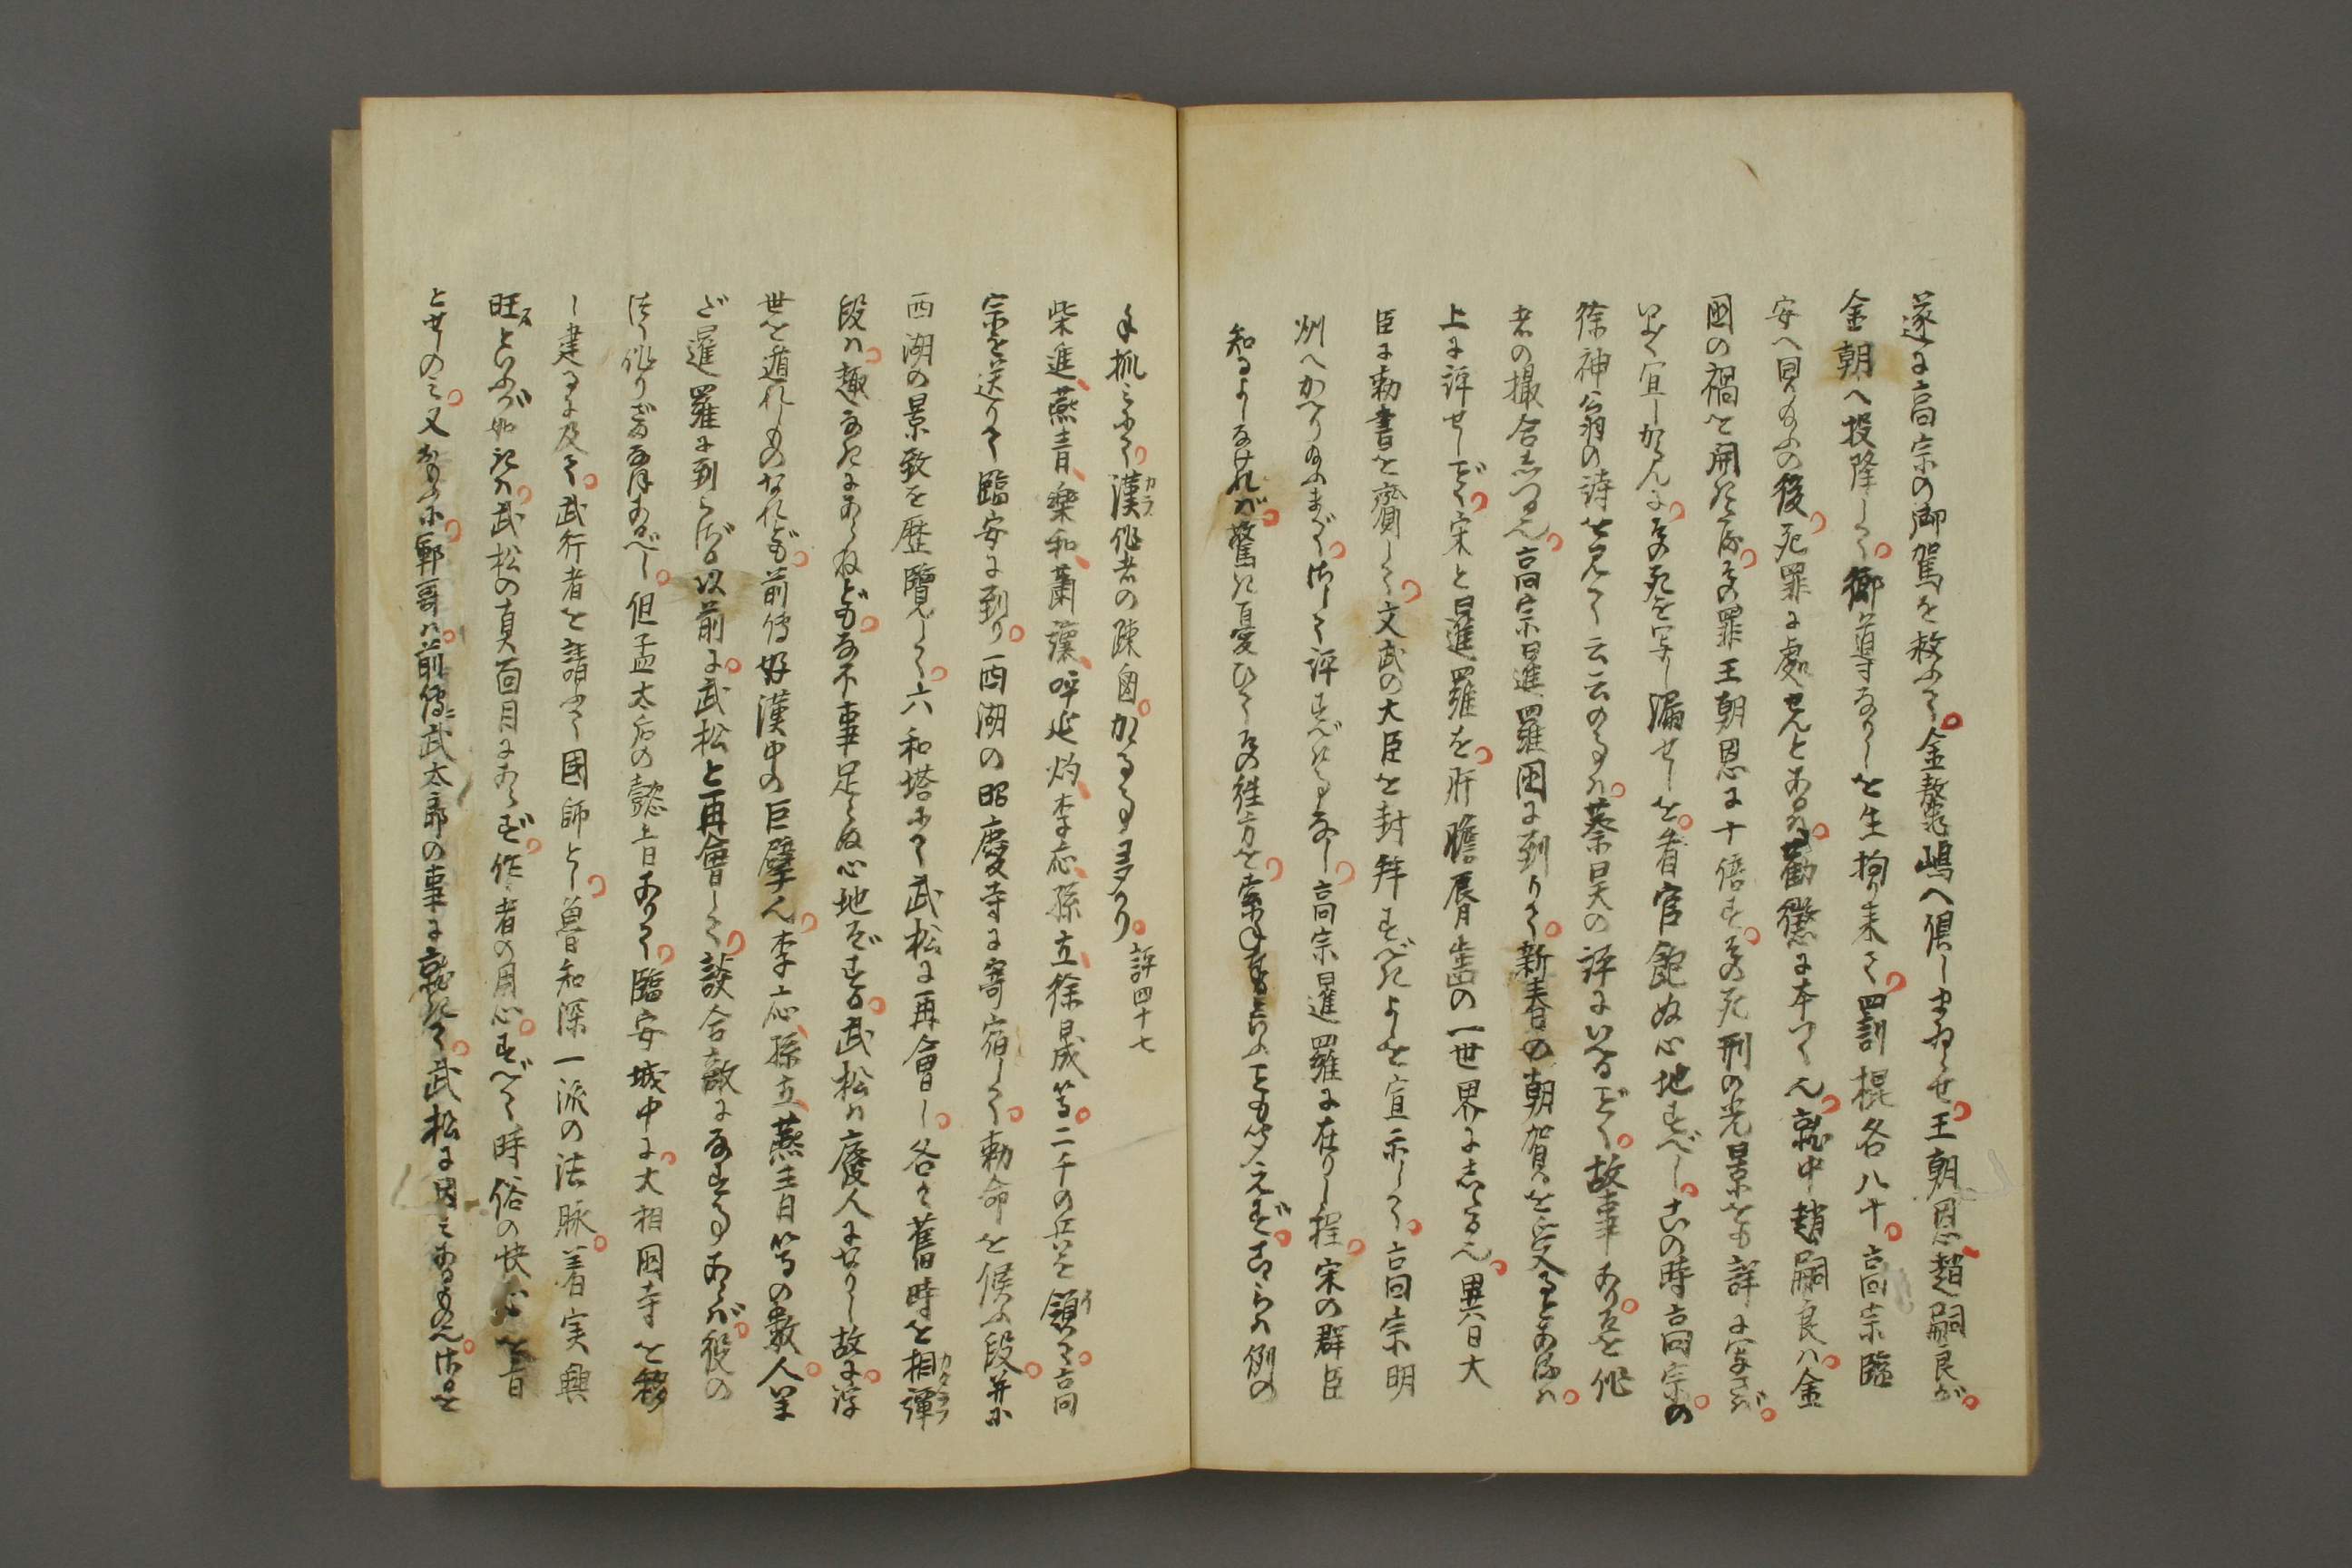 遂に高宗の御駕を救ふて。金鰲嶋へ倶しまゐらせ。王朝恩、趙嗣良が。
金朝へ投降して。郷導なりしを生拘り来て。四訓棍各八十。高宗臨
安へ見りたまふの後。死罪に處せんとあるハ。勸懲に本つく也。就中趙嗣良ハ。金
國の禍を開たれバ。その罪王朝恩に十倍す。その死刑の光景をも詳に写さバ。
いよく宜しからんに。その死を写し漏せしを。看官飽ぬ心地すべし。この時高宗の。
徐神公翁の詩を見て云云の事ハ。蔡昊の評にいへるごとく。故事あり。そを作
者の撮合したる也。高宗暹羅國に到りて。新春の朝賀を受るとあるハ。
上に評せしごとく。宋と暹羅を。肝膽唇歯の一世界にしたる也。異日大
臣に勅書を齎して。文武の大臣を封拜すべきよしを宣示して。高宗明
州へかへりたまふまで。すべて評すべき事なし。高宗暹羅に在りし程。宋の群臣
知るよしなけれバ。驚き憂ひてその往方を。索ねまつるといふことも聞えず。これらハ例の
手抓ミにて。漢作者の疎鹵。かゝる事多かり。評四十七
柴進、燕青、樂和、蕭讓、呼延灼、李応、孫立、徐晟等。二千の兵を領て。高
宗を送りて臨安に到り。西湖の昭慶寺に寄宿して。勅命を候ふ段。并に
西湖の景致を歴覽して。六和塔にて武松に再會し。各々舊時を相譚
段ハ。趣なきにあらねども。なほ事足らぬ心地ぞする。武松ハ廢人になりし故に。浮
世を遁れしものなれども。前傳好漢中の巨擘也。李応、孫立、燕青等の數人。いま
だ暹羅に到らざる以前に。武松と再會して。談合敵になす事あらバ。後の
法く作りざまあるべし。但孟太后の懿旨ありて。臨安城中に。大相國寺を移
し建るに及て。武行者を請ふて國師とし。魯知深一派の法脉。着実興
旺すといふが如きハ。武松の真面目にあらず。作者の用心。すべて時俗の快心を旨
とせしのミ。又おもふに。鄆哥ハ。前傳に武太郎の事に就きて。武松に因ミあるもの也。さるを